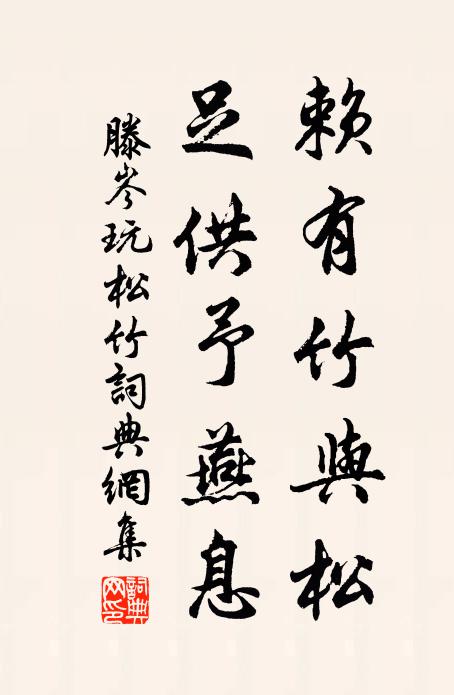 賴有竹與松
足供予燕息
滕岑玩松竹詞典網集
詞典网印